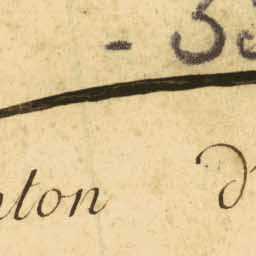 - 33
nton d'